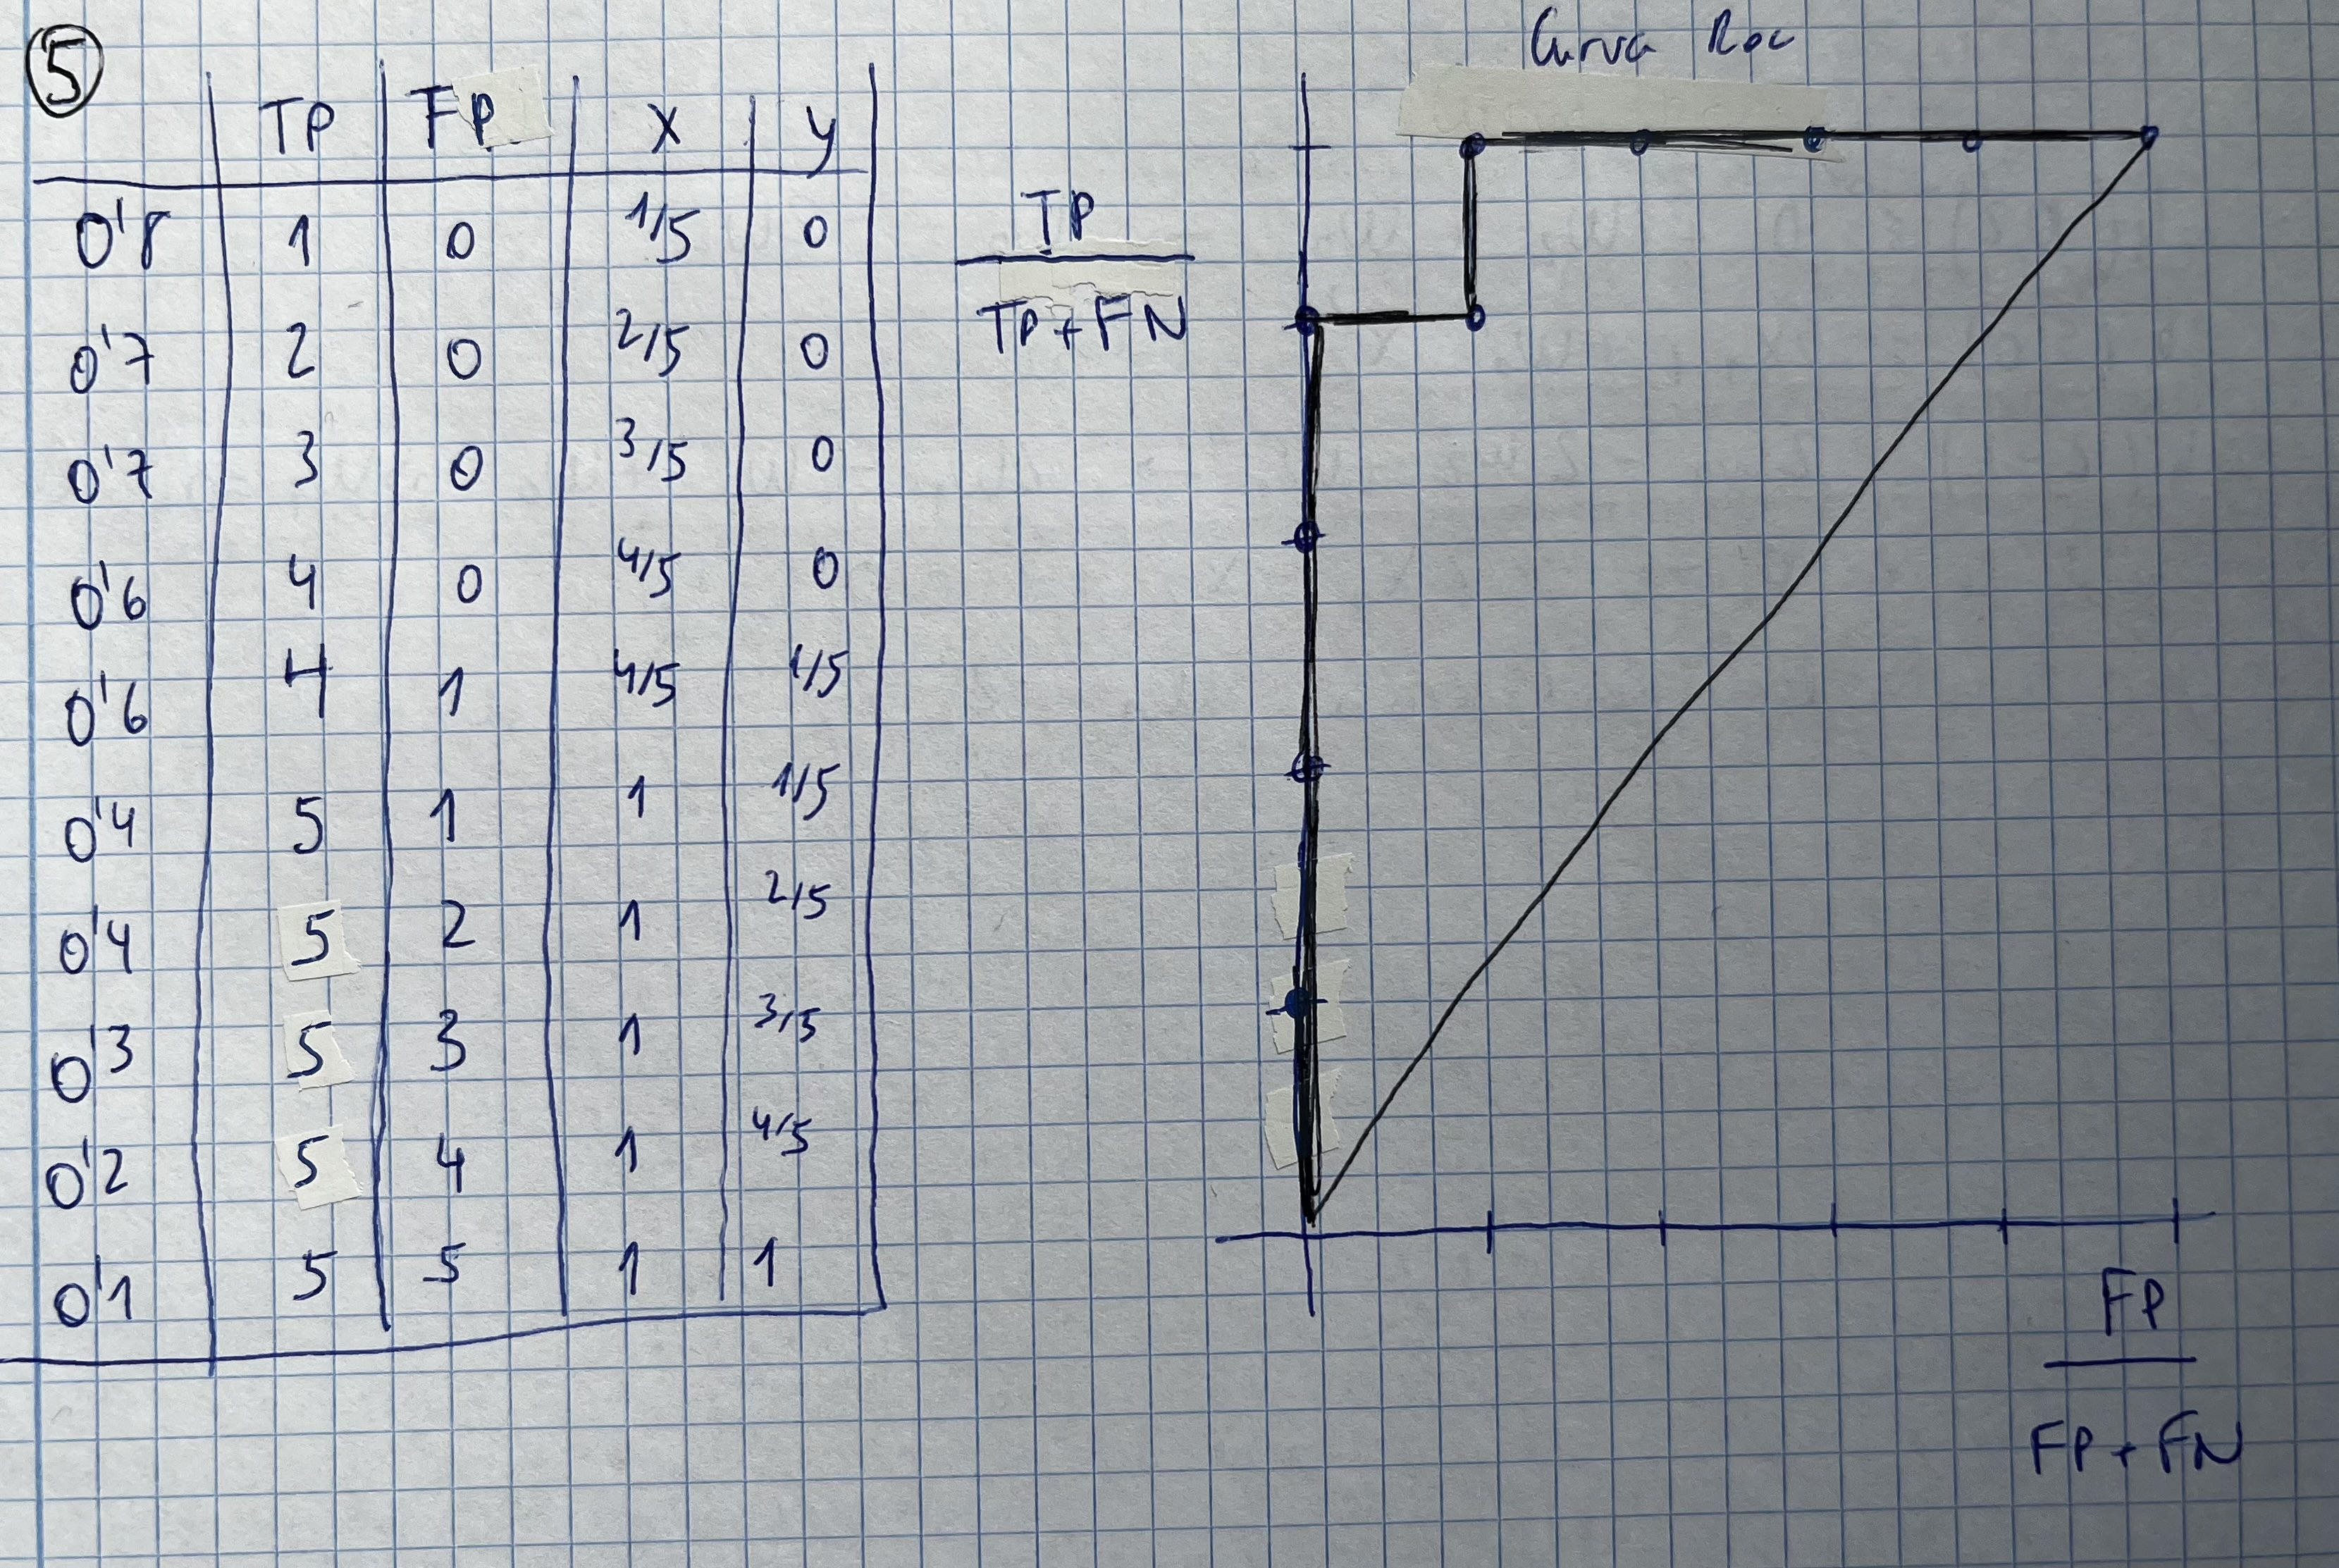 5
Curva Roc
TP FP x y
0'8 1 0 1/5 0
0'7 2 0 2/5 0
0'7 3 0 3/5 0
0'6 4 0 4/5 0
0'6 4 1 4/5 1/5
0'4 5 1 1 1/5
0'4 5 2 1 2/5
0'3 5 3 1 3/5
0'2 5 4 1 4/5
0'1 5 5 1 1
TP
TP + FN
FP
FP + FN